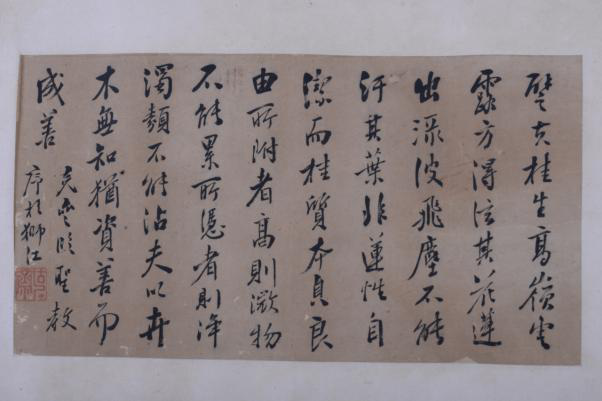 譬夫桂生高嶺雲
露方得泫其花蓮
出淥波飛塵不能
汙其葉非蓮性自
潔而桂質本貞良
由所附者高則微物
不能累所憑者則淨
濁類不能沾夫以卉
木無知猶資善而
成善
臨聖教
序於獅江